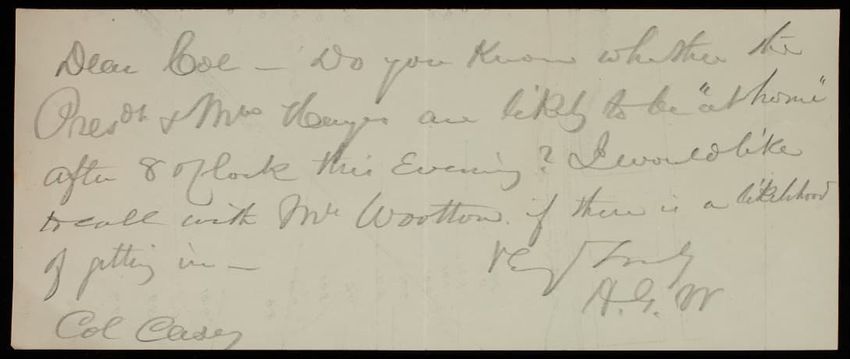 Dear Col — Do you know whether the
Presdt & Mrs Hayes are likely to be "at home"
after 8 o'clock this Evening? I would like
to call with Mr Wootton if there is a likelihood
of getting in —
Very Truly
H. G. W
Col Casey